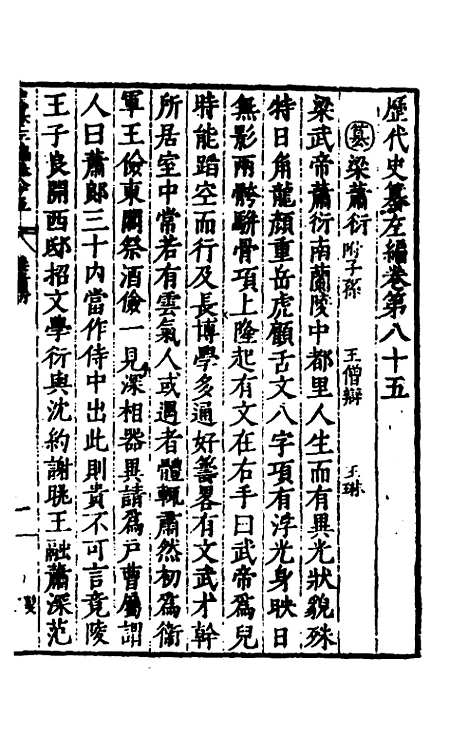 歷代史纂左編卷第八十五
篡 梁蕭衍 附子孫 王僧辯 王琳
梁武帝蕭衍南蘭陵中都里人生而有異光狀貌殊
特日角龍顏重岳虎顧舌文八字項有浮光身映日
無影兩骻駢骨項上隆起有文在右手曰武帝爲兒
時能蹈空而行及長博學多通好籌畧有文武才幹
所居室中常若有雲氣人或遇者體輒肅然初爲衞
軍王儉東閣祭酒儉一見深相器異請爲戶曹屬謂
人曰蕭郎三十內當作侍中出此則貴不可言竟陵
王子良開西邸招文學衍與沈約謝脁王融蕭深范